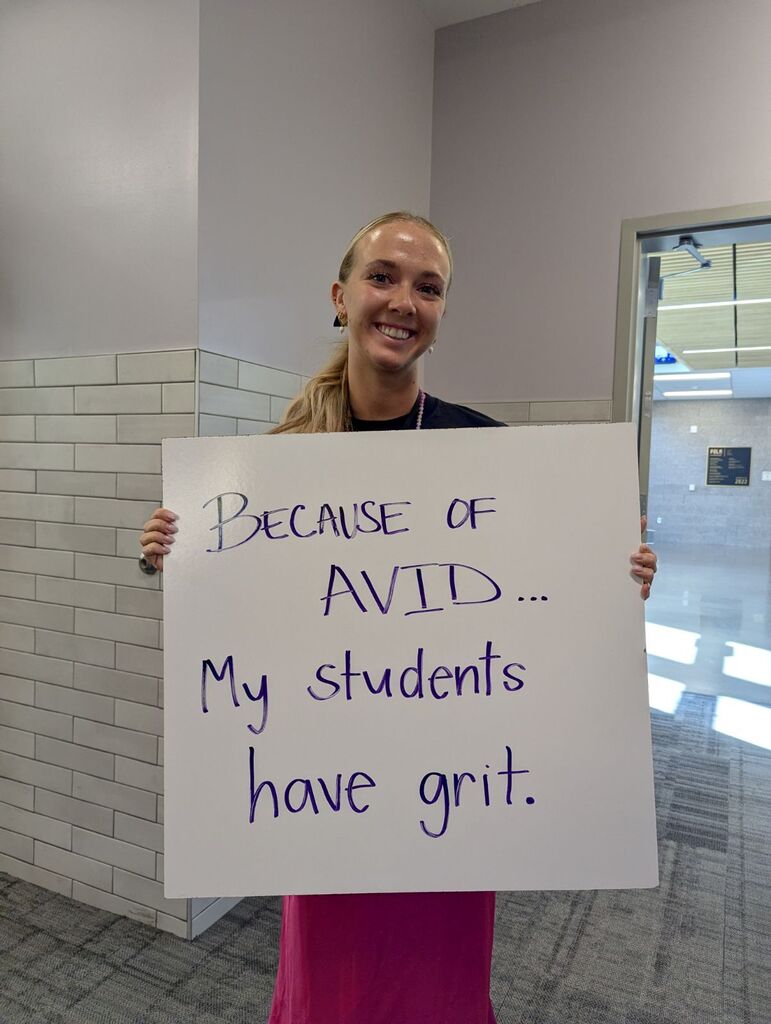 BECAUSE OF
AVID...
My students
have grit.
2022